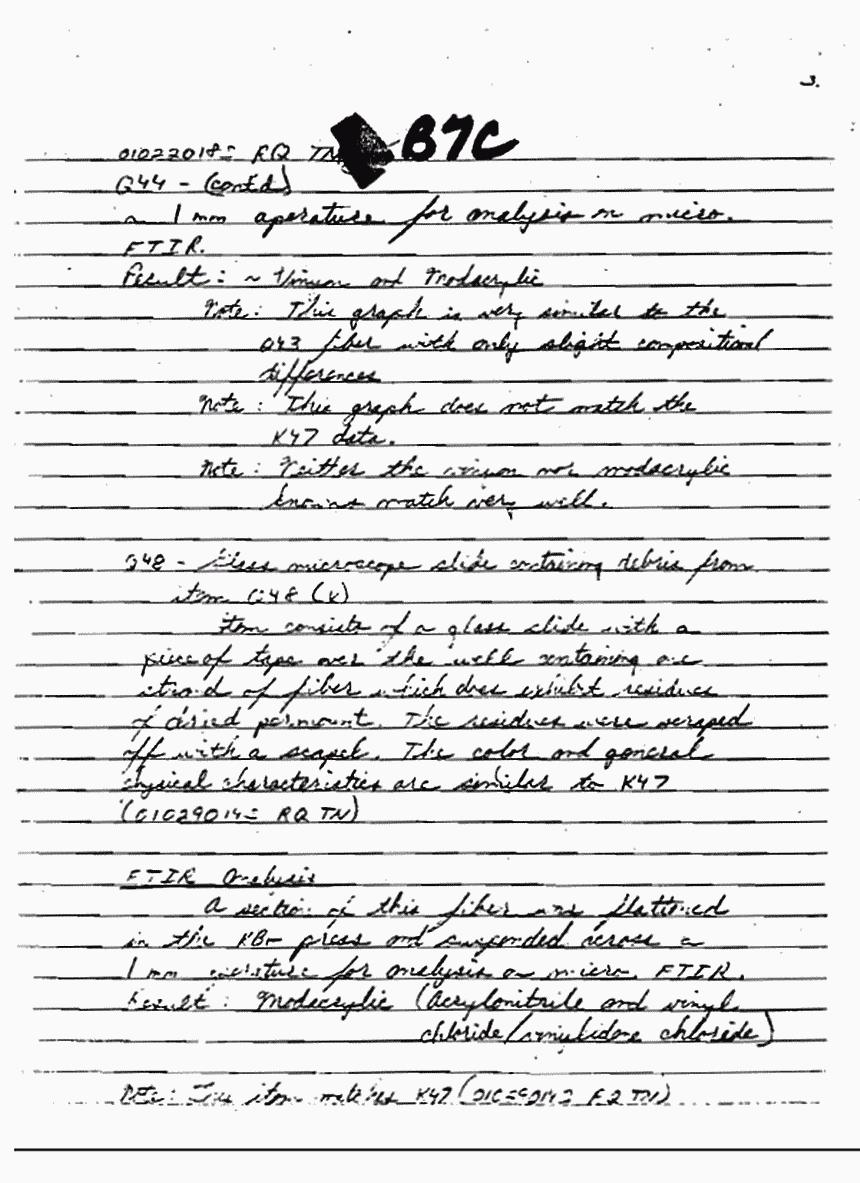 3.
B7C
01022018= RQ TN
Q44 - (cont'd)
~ 1 mm aperature for analysis on micro.
FTIR.
Result: ~ and Modacrylic
Note: This graph is very similar to the
Q43 fiber with only slight compositional
differences
Note: This graph does not match the
K47 data.
Note: Neither the nor modacrylic
knowns match very well.
Q48 - Glass microscope slide containing debris from
item Q48
Item consists of a glass slide with a
piece of tape over the well containing one
strand of fiber which does exhibit residues
of dried permount. The residues were scraped
off with a scapel. The color and general
physical characteristics are similar to K47
(01029014= RQ TN)
FTIR Analysis
A section of this fiber was flattened
in the KBr press and suspended across a
1 mm for analysis on micro. FTIR.
Result: Modacrylic (Acrylonitrile and vinyl
chloride/ chloride)
Note: This item matches K47 ( RQ TN)